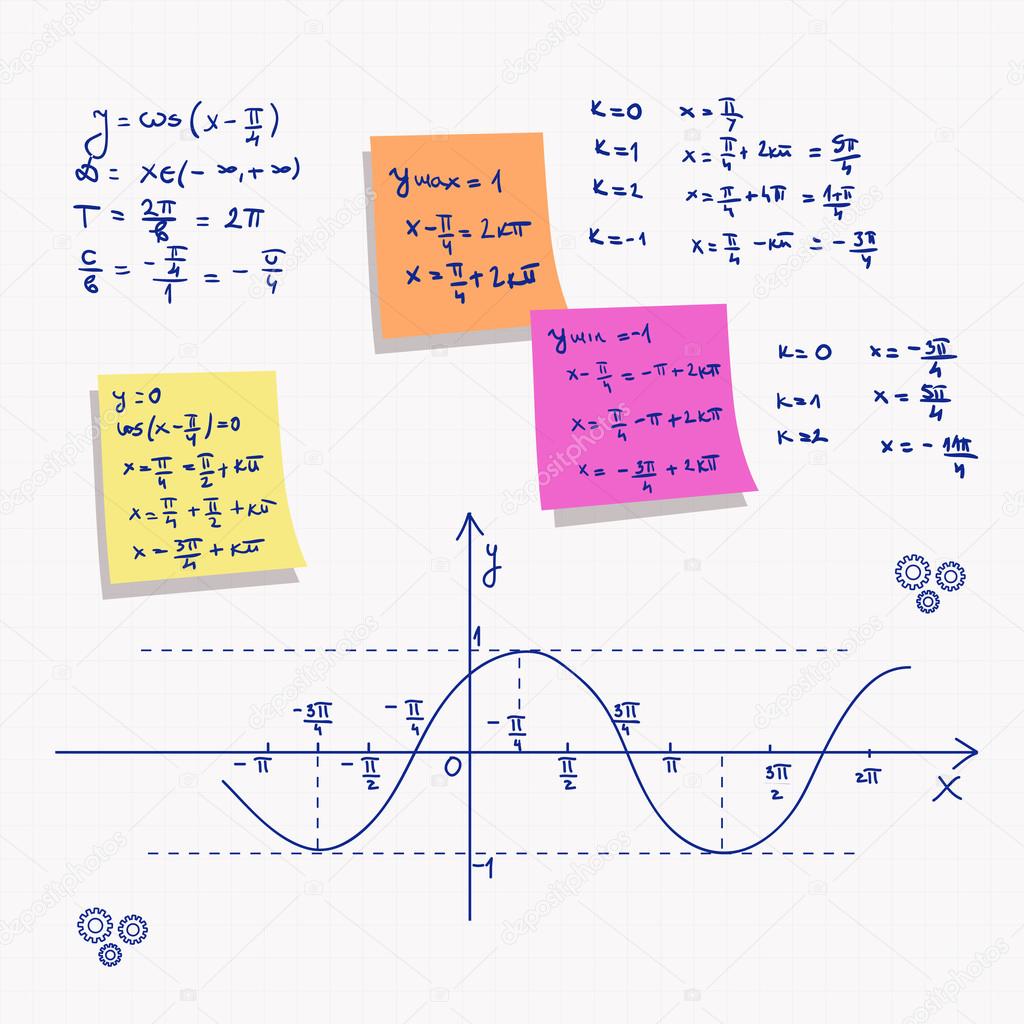 y = cos(x - π/4)
D = x∈(-∞,+∞)
T = 2π/b = 2π
c/b = (-π/4)/1 = -π/4
y max = 1
x - π/4 = 2kπ
x = π/4 + 2kπ
k=0 x = π/7
k=1 x = π/4 + 2kπ = 5π/4
k=2 x = π/4 + 4π = 17π/4
k=-1 x = π/4 - kπ = -3π/4
y min = -1
x - π/4 = -π + 2kπ
x = π/4 - π + 2kπ
x = -3π/4 + 2kπ
k=0 x = -3π/4
k=1 x = 5π/4
k=2 x = -11π/4
y = 0
cos(x - π/4) = 0
x = π/4 = π/2 + kπ
x = π/4 + π/2 + kπ
x = 3π/4 + kπ
y
1
-3π/4 -π/4 -π/4 3π/4
-π -π/2 0 π/2 π 3π/2 2π
x
-1
depositphotos